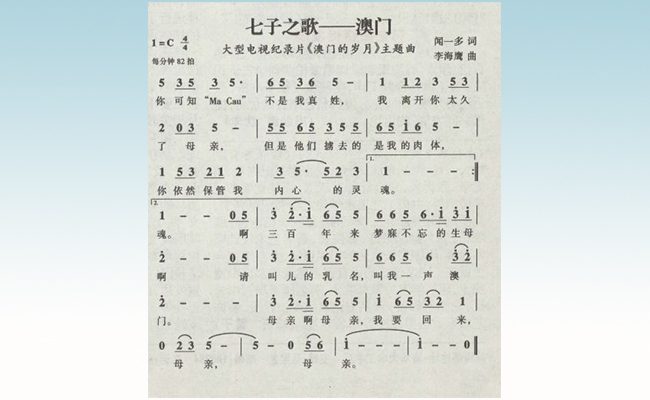 七子之歌——澳门
1=C 4/4
大型电视纪录片《澳门的岁月》主题曲
闻一多 词
每分钟 82 拍
李海鹰 曲
5 35 3 5· | 65 36 5 - | 1 12 3 5 | 35 3 52 3
你 可知 “Ma Cau” 不是 我真 姓， 我 离开 你 太久
2 03 5 - | 55 65 35 5 | 65 i65 5 -
了 母 亲， 但是 他们 掳去 的 是我 的肉 体，
1. 
1 53 21 2 | 3 5· 52 3 | 1 - - - :|
你 依然 保管 我 内 心 的 灵 魂。
2.
1 - - 05 | 3 2·i 65 5 | 66 5 6·i 3i
魂。 啊 三 百 年 来 梦寐 不忘 的生 母
2 - - 05 | 3 2·i 65 5 | 66 5 6 32
啊 请 叫 儿 的 乳 名，叫 我 一 声 澳
2 - - - | 3 2·i 65 5 | i 65 32 1
门。 母 亲 啊 母 亲，我 要 回 来，
0 23 5 - | 5 - 0 56 | i - - - | i - - 0 ||
母 亲， 母 亲。